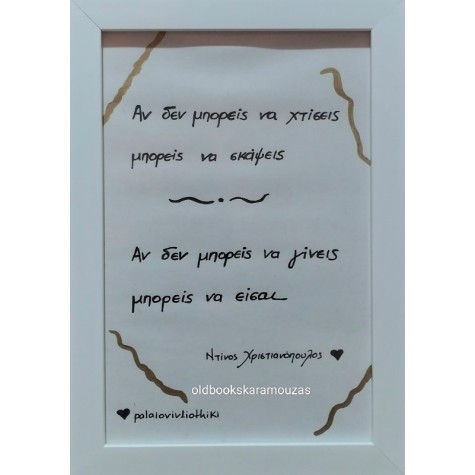 Αν δεν μπορείς να χτίσεις
μπορείς να σκάψεις
Αν δεν μπορείς να γίνεις
μπορείς να είσαι
Ντίνος Χριστιανόπουλος
oldbookskaramouzas
palaiovivliothiki